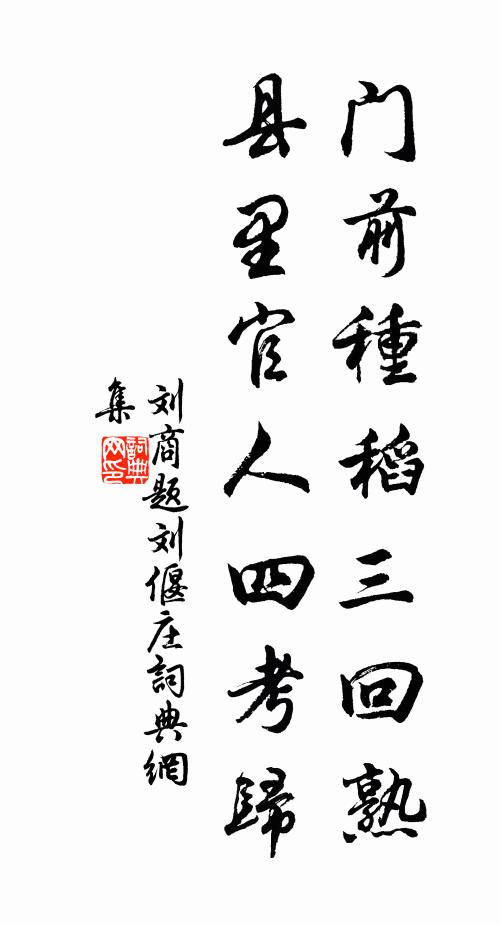 门前種稻三回熟
县里官人四考歸
刘商题刘偃庄詞典網
集
詞典网印